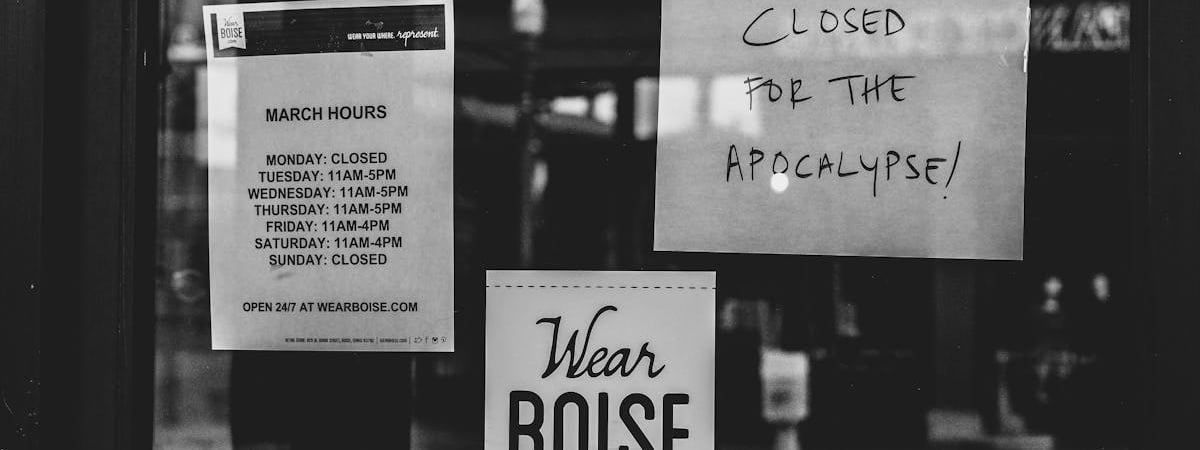 Wear
BOISE
.com
WEAR YOUR WHERE. represent.
MARCH HOURS
MONDAY: CLOSED
TUESDAY: 11AM-5PM
WEDNESDAY: 11AM-5PM
THURSDAY: 11AM-5PM
FRIDAY: 11AM-4PM
SATURDAY: 11AM-4PM
SUNDAY: CLOSED
OPEN 24/7 AT WEARBOISE.COM
CLOSED
FOR THE
APOCALYPSE!
Wear
BOISE